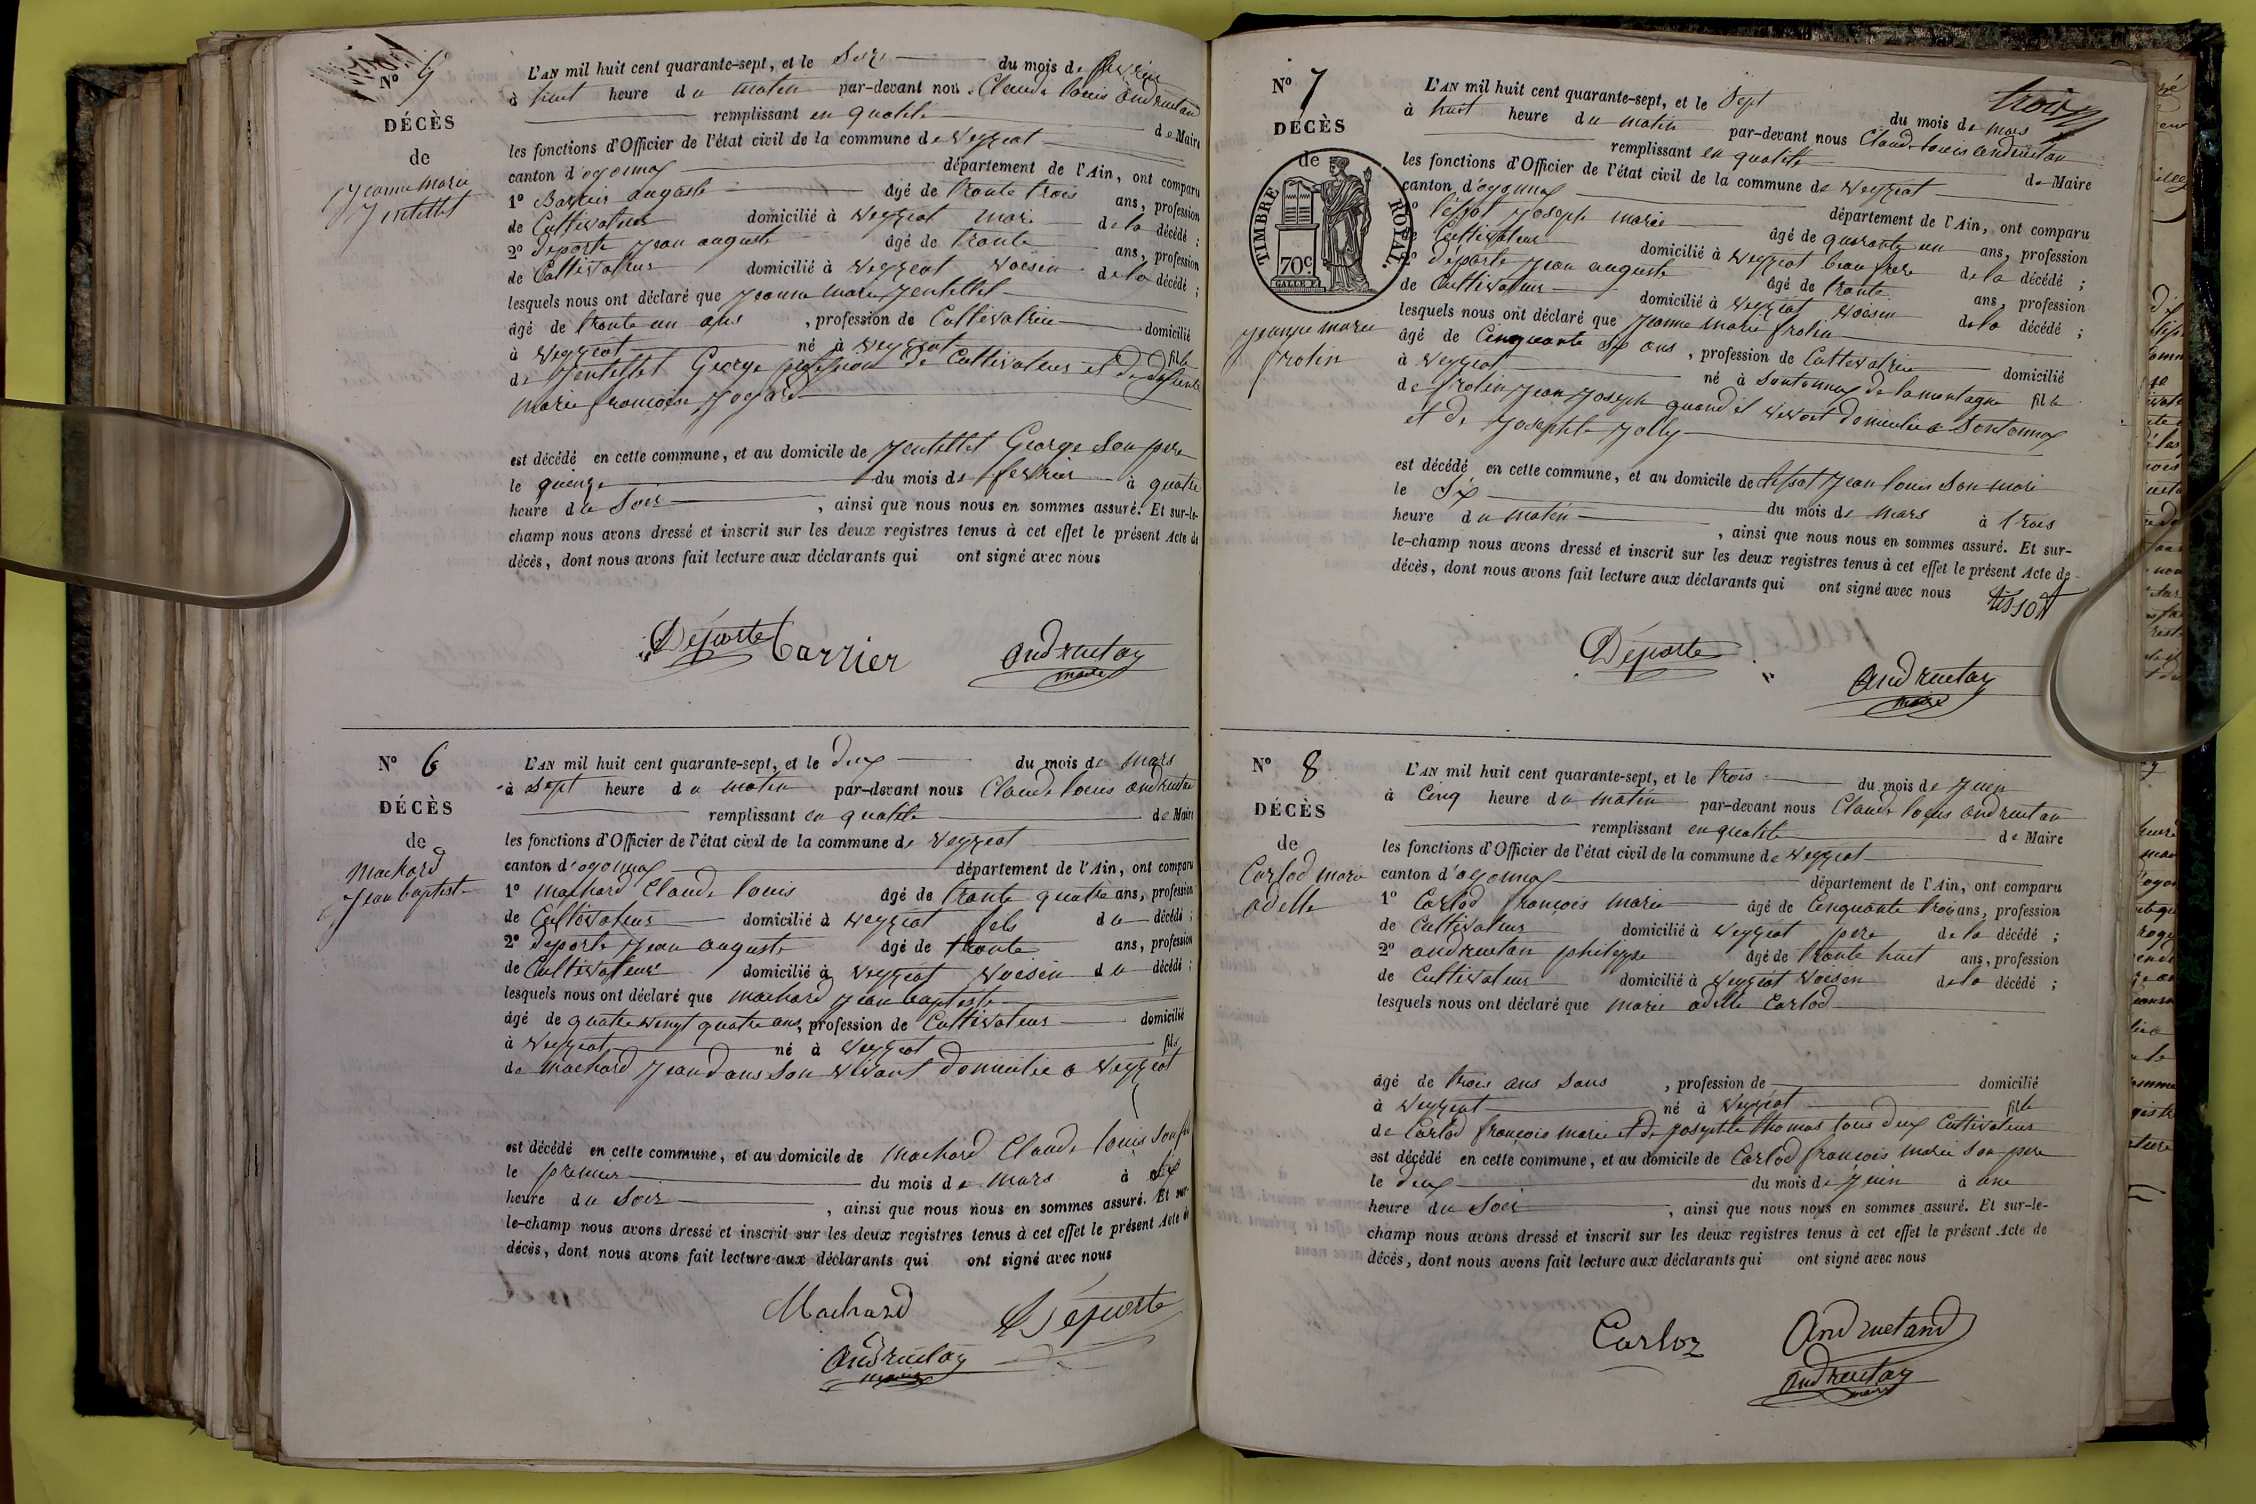 N° 5
DÉCÈS
de
Jeanne Marie
Jentellet
L'AN mil huit cent quarante-sept, et le Seize du mois de fevrier
à huit heure du matin par-devant nous Claude louis andruetan
remplissant en qualité de Maire
les fonctions d'Officier de l'état civil de la commune de Veyziat
canton d'oyonnax département de l'Ain, ont comparu
1° Barrier auguste âgé de trente trois ans, profession
de Cultivateur domicilié à Veyziat mari de la décédé ;
2° deporte Jean auguste âgé de trente ans, profession
de Cultivateur domicilié à Veyziat Voisin de la décédé ;
lesquels nous ont déclaré que Jeanne Marie Jentellet
âgé de trente un ans , profession de Cultivatrice domicilié
à Veyziat né à Veyziat fille
de Jentellet George profession de Cultivateur et de defunte
marie françoise Jogard
est décédé en cette commune, et au domicile de Jentellet George Son pere
le quinze du mois de fevrier à quatre
heure du Soir , ainsi que nous nous en sommes assuré. Et sur-le-
champ nous avons dressé et inscrit sur les deux registres tenus à cet effet le présent Acte de
décès, dont nous avons fait lecture aux déclarants qui ont signé avec nous
Déporte Barrier andruetan
maire
N° 6
DÉCÈS
de
Machard
Jean baptiste
L'AN mil huit cent quarante-sept, et le deux du mois de mars
à Sept heure du matin par-devant nous Claude louis andruetan
remplissant en qualité de Maire
les fonctions d'Officier de l'état civil de la commune de Veyziat
canton d'oyonnax département de l'Ain, ont comparu
1° machard Claude louis âgé de trente quatre ans, profession
de Cultivateur domicilié à Veyziat fils du décédé ;
2° deporte Jean auguste âgé de trente ans, profession
de Cultivateur domicilié à Veyziat Voisin du décédé ;
lesquels nous ont déclaré que machard Jean baptiste
âgé de quatre vingt quatre ans, profession de Cultivateur domicilié
à Veyziat né à Veyziat fils
de machard Jean dans Son vivant domicilié a Veyziat
est décédé en cette commune, et au domicile de machard Claude louis Son fils
le premier du mois de mars à Six
heure du Soir , ainsi que nous nous en sommes assuré. Et sur-
le-champ nous avons dressé et inscrit sur les deux registres tenus à cet effet le présent Acte de
décès, dont nous avons fait lecture aux déclarants qui ont signé avec nous
Machard Déporte
andruetan
maire
trois
N° 7
DÉCÈS
de
TIMBRE ROYAL.
70c
Jeanne marie
frolin
L'AN mil huit cent quarante-sept, et le Sept du mois de mars
à huit heure du matin par-devant nous Claude louis andruetan
remplissant en qualité de Maire
les fonctions d'Officier de l'état civil de la commune de Veyziat
canton d'oyonnax département de l'Ain, ont comparu
1° tissot Joseph marie âgé de quarante un ans, profession
de Cultivateur domicilié à Veyziat beau frere de la décédé ;
2° déporte Jean auguste âgé de trente ans, profession
de Cultivateur domicilié à Veyziat Voisin de la décédé ;
lesquels nous ont déclaré que Jeanne marie frolin
âgé de Cinquante Six ans , profession de Cultivatrice domicilié
à Veyziat né à Sontonnax de la montagne fille
de frolin Jean Joseph quand il vivoit domicilié a Sontonnax
et de Josephte Jolly
est décédé en cette commune, et au domicile de tissot Jean louis Son mari
le Six du mois de mars à trois
heure du matin , ainsi que nous nous en sommes assuré. Et sur-
le-champ nous avons dressé et inscrit sur les deux registres tenus à cet effet le présent Acte de
décès, dont nous avons fait lecture aux déclarants qui ont signé avec nous tissot
Déporte
andruetan
maire
N° 8
DÉCÈS
de
Carlod marie
adelle
L'AN mil huit cent quarante-sept, et le trois du mois de Juin
à Cinq heure du matin par-devant nous Claude louis andruetan
remplissant en qualité de Maire
les fonctions d'Officier de l'état civil de la commune de Veyziat
canton d'oyonnax département de l'Ain, ont comparu
1° Carlod françois marie âgé de Cinquante trois ans, profession
de Cultivateur domicilié à Veyziat pere de la décédé ;
2° andruetan philippe âgé de trente huit ans, profession
de Cultivateur domicilié à Veyziat Voisin de la décédé ;
lesquels nous ont déclaré que marie adelle Carlod
âgé de trois ans Sans , profession de domicilié
à Veyziat né à Veyziat fille
de Carlod françois marie et de josephte thomas tous deux Cultivateur
est décédé en cette commune, et au domicile de Carlod françois marie Son pere
le deux du mois de Juin à une
heure du Soir , ainsi que nous nous en sommes assuré. Et sur-le-
champ nous avons dressé et inscrit sur les deux registres tenus à cet effet le présent Acte de
décès, dont nous avons fait lecture aux déclarants qui ont signé avec nous
Carloz andruetand
andruetan
maire